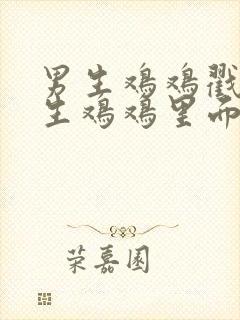 男生鸡鸡戳
生鸡鸡里面
荣嘉园